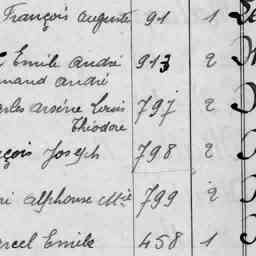 François Auguste 91 1
Emile André 913 2
mand André
arles Arsène Louis 797 2
Théodore
çois Joseph 798 2
ri Alphonse Mie 799 2
rcel Emile 458 1